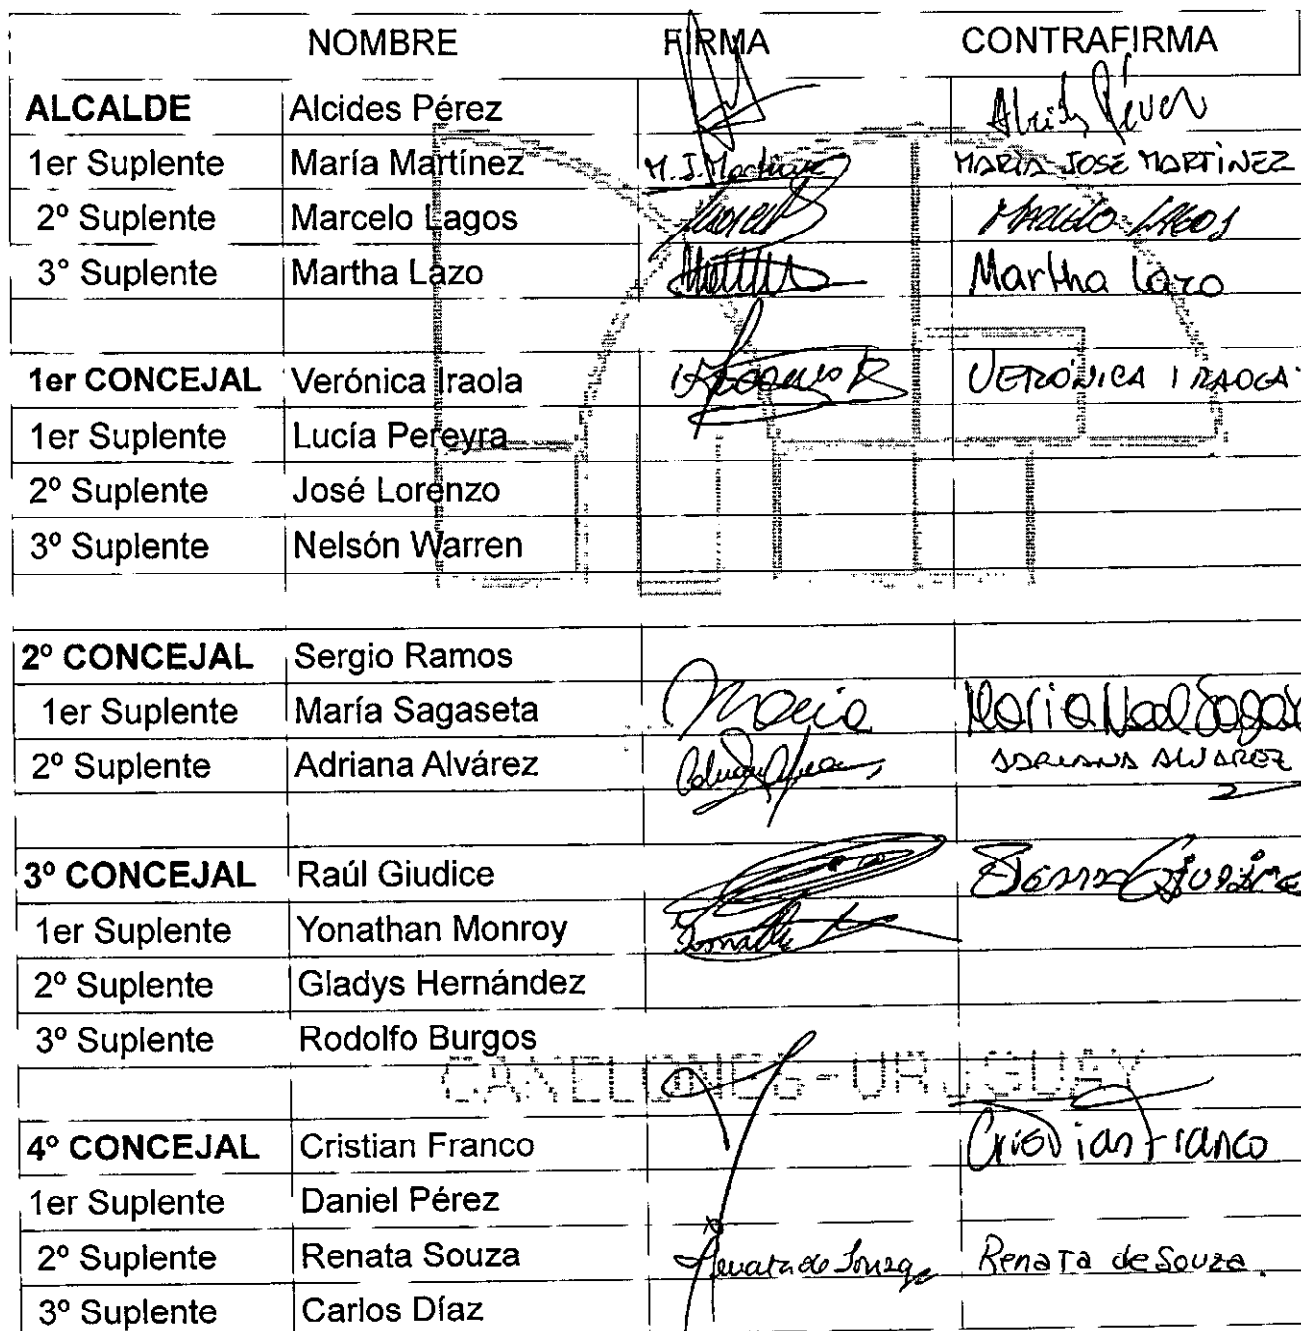 NOMBRE FIRMA CONTRAFIRMA
ALCALDE Alcides Pérez
1er Suplente María Martínez M. J. Martínez MARÍA JOSE MARTÍNEZ
2º Suplente Marcelo Lagos MARCELO LAGOS
3° Suplente Martha Lazo Martha Lazo
1er CONCEJAL Verónica Iraola VERÓNICA IRAOLA
1er Suplente Lucía Pereyra
2º Suplente José Lorenzo
3º Suplente Nelsón Warren
2º CONCEJAL Sergio Ramos
1er Suplente María Sagaseta María María Noel
2º Suplente Adriana Alvárez ADRIANA ALVAREZ
3º CONCEJAL Raúl Giudice
1er Suplente Yonathan Monroy
2º Suplente Gladys Hernández
3º Suplente Rodolfo Burgos
CANELONES-URUGUAY
4º CONCEJAL Cristian Franco Cristian Franco
1er Suplente Daniel Pérez
2º Suplente Renata Souza Renata de Souza Renata de Souza.
3º Suplente Carlos Díaz